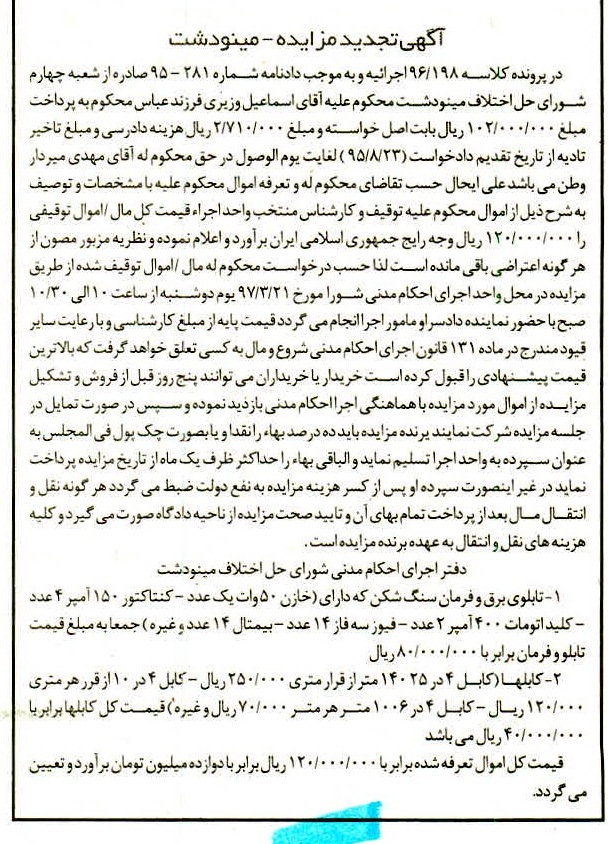 آگهی تجدید مزایده - مینودشت
در پرونده کلاسه ۹۶/۱۹۸ اجرائیه و به موجب دادنامه شماره ۲۸۱ - ۹۵ صادره از شعبه چهارم
شورای حل اختلاف مینودشت محکوم علیه آقای اسماعیل وزیری فرزند عباس محکوم به پرداخت
مبلغ ۱۰۲/۰۰۰/۰۰۰ ریال بابت اصل خواسته و مبلغ ۲/۷۱۰/۰۰۰ ریال هزینه دادرسی و مبلغ تاخیر
تادیه از تاریخ تقدیم دادخواست (۹۵/۸/۲۳) لغایت یوم الوصول در حق محکوم له آقای مهدی میردار
وطن می باشد علی ایحال حسب تقاضای محکوم له و تعرفه اموال محکوم علیه با مشخصات و توصیف
به شرح ذیل از اموال محکوم علیه توقیف و کارشناس منتخب واحد اجراء قیمت کل مال /اموال توقیفی
را ۱۲۰/۰۰۰/۰۰۰ ریال وجه رایج جمهوری اسلامی ایران برآورد و اعلام نموده و نظریه مزبور مصون از
هر گونه اعتراضی باقی مانده است لذا حسب درخواست محکوم له مال /اموال توقیف شده از طریق
مزایده در محل واحد اجرای احکام مدنی شورا مورخ ۹۷/۳/۲۱ یوم دوشنبه از ساعت ۱۰ الی ۱۰/۳۰
صبح با حضور نماینده دادسرا و مامور اجرا انجام می گردد قیمت پایه از مبلغ کارشناسی و با رعایت سایر
قیود مندرج در ماده ۱۳۱ قانون اجرای احکام مدنی شروع و مال به کسی تعلق خواهد گرفت که بالاترین
قیمت پیشنهادی را قبول کرده است خریدار یا خریداران می توانند پنج روز قبل از فروش و تشکیل
مزایده از اموال مورد مزایده با هماهنگی اجرا احکام مدنی بازدید نموده و سپس در صورت تمایل در
جلسه مزایده شرکت نمایند برنده مزایده باید ده درصد بهاء را نقدا و یا بصورت چک پول فی المجلس به
عنوان سپرده به واحد اجرا تسلیم نماید و الباقی بهاء را حداکثر ظرف یک ماه از تاریخ مزایده پرداخت
نماید در غیر اینصورت سپرده او پس از کسر هزینه مزایده به نفع دولت ضبط می گردد هر گونه نقل و
انتقال مال بعد از پرداخت تمام بهای آن و تایید صحت مزایده از ناحیه دادگاه صورت می گیرد و کلیه
هزینه های نقل و انتقال به عهده برنده مزایده است.
دفتر اجرای احکام مدنی شورای حل اختلاف مینودشت
۱- تابلوی برق و فرمان سنگ شکن که دارای (خازن ۵۰ وات یک عدد - کنتاکتور ۱۵۰ آمپر ۴ عدد
- کلید اتومات ۴۰۰ آمپر ۲ عدد - فیوز سه فاز ۱۴ عدد - بیمتال ۱۴ عدد و غیره) جمعا به مبلغ قیمت
تابلو و فرمان برابر با ۸۰/۰۰۰/۰۰۰ ریال
۲- کابلها (کابل ۴ در ۲۵ ۱۴۰ متر از قرار متری ۲۵۰/۰۰۰ ریال - کابل ۴ در ۱۰ از قرر هر متری
۱۲۰/۰۰۰ ریال - کابل ۴ در ۶ ۱۰۰ متر هر متر ۷۰/۰۰۰ ریال و غیره) قیمت کل کابلها برابر با
۴۰/۰۰۰/۰۰۰ ریال می باشد
قیمت کل اموال تعرفه شده برابر با ۱۲۰/۰۰۰/۰۰۰ ریال برابر با دوازده میلیون تومان برآورد و تعیین
می گردد.